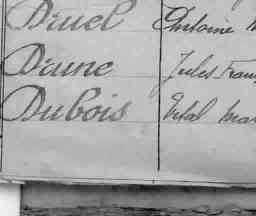 Divel Antoine
Diunc Jules Fran
Dubois Vital Mar